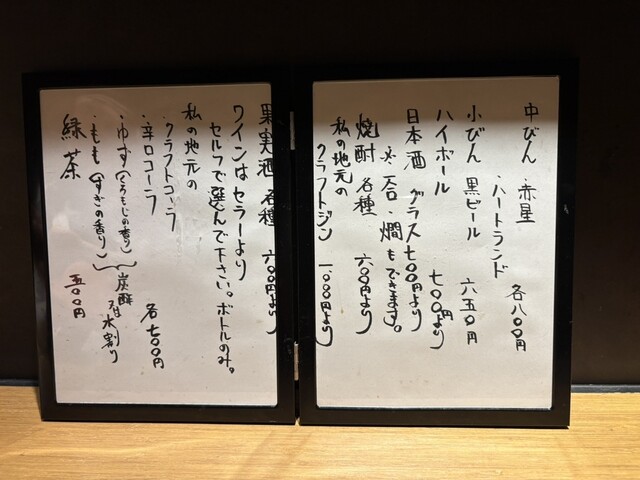 中びん ・赤星
・ハートランド 各八〇〇円
小びん 黒ビール 六五〇円
ハイボール 七〇〇円より
日本酒 グラス七〇〇円より
※一合・燗もできます。
焼酎 各種 六〇〇円より
私の地元の
クラフトジン 一、〇〇〇円より
果実酒 各種 六〇〇円より
ワインはセラーより
セルフで選んで下さい。ボトルのみ。
私の地元の
・クラフトコーラ
・辛口コーラ 各七〇〇円
・ゆず(くろもじの香り)
・もも(すぎの香り) 炭酸 or 水割り
緑茶 五〇〇円